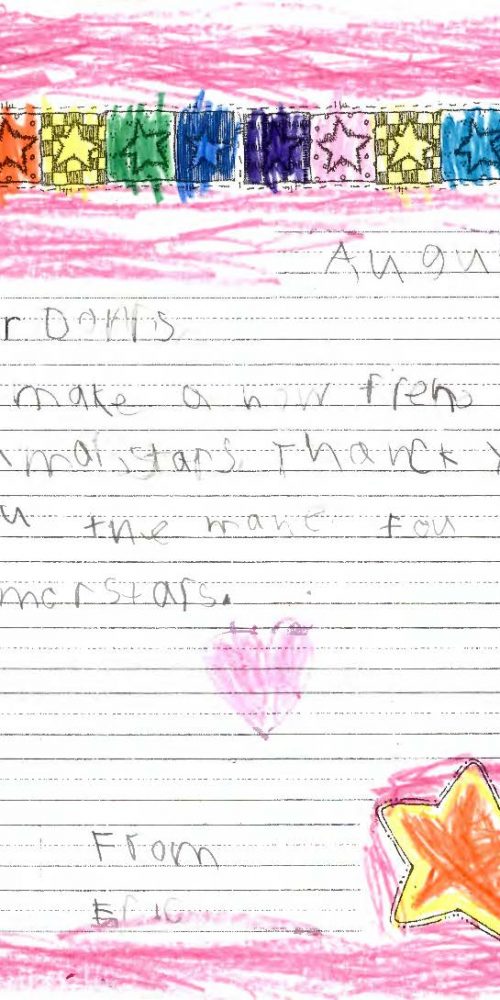 Augu
r Donris
make a now fren
mar,stars. Thanck Y
u the mane fou
merstars.
From
Eric